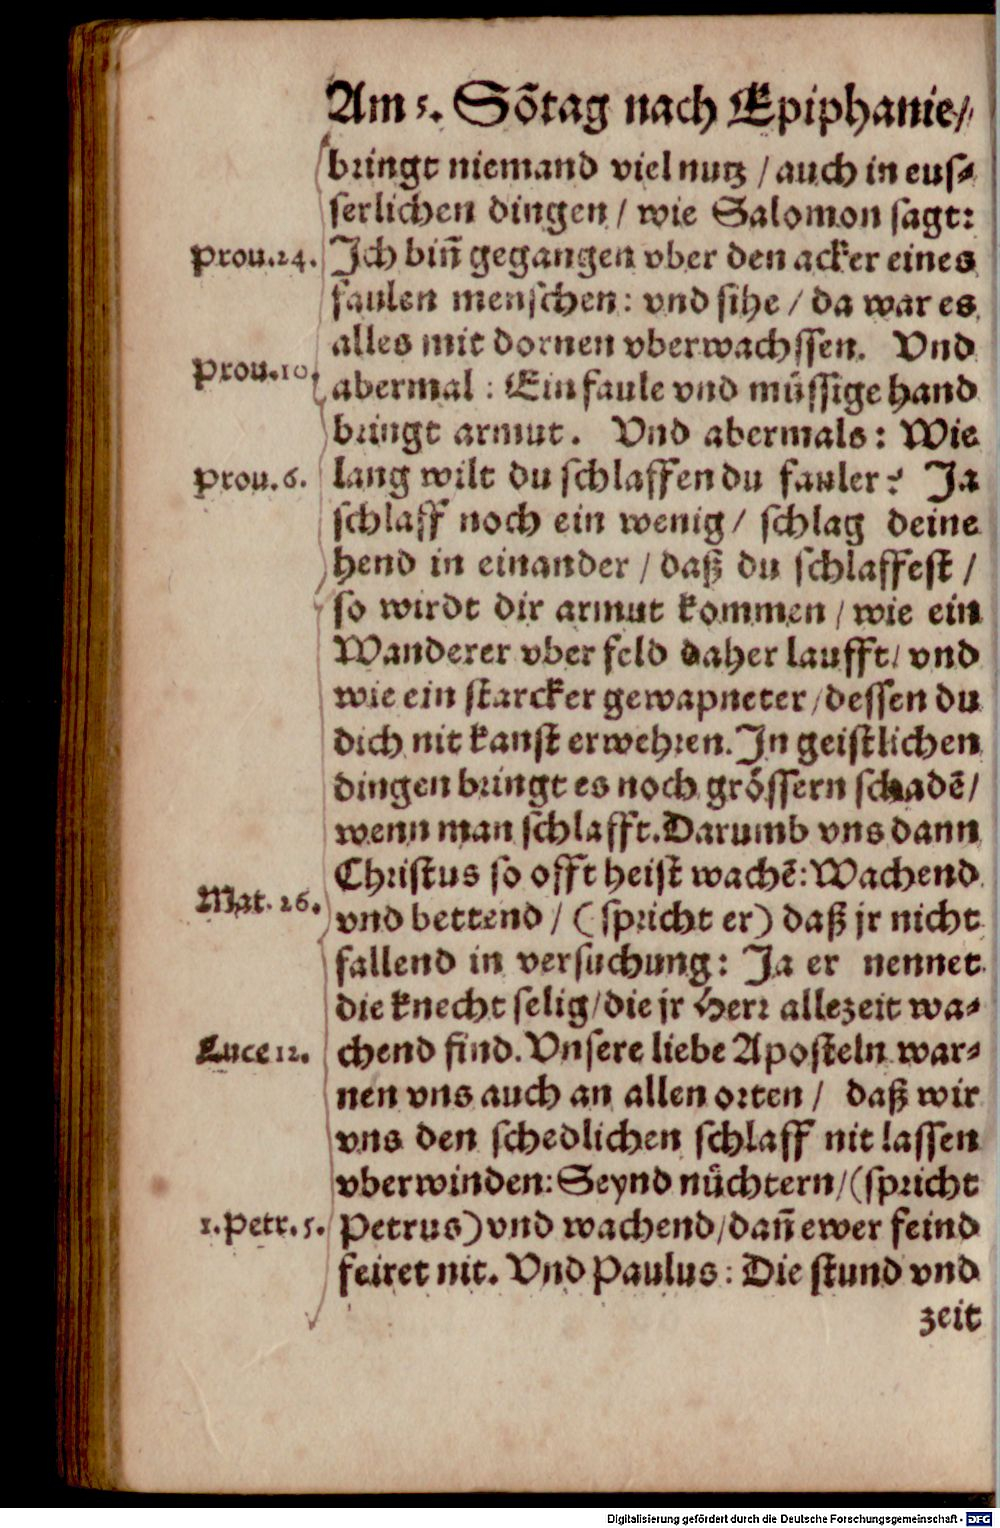 Am 5. Sõtag nach Epiphanie/
bringt niemand viel nutz / auch in eus⸗
serlichen dingen / wie Salomon sagt:
Prou.24.
Ich biñ gegangen vber den acker eines
faulen menschen: vnd sihe / da war es
alles mit dornen vberwachssen. Vnd
Prou.10.
abermal: Ein faule vnd müssige hand
bringt armut. Vnd abermals: Wie
Prou.6.
lang wilt du schlaffen du fauler? Ja
schlaff noch ein wenig / schlag deine
hend in einander / daß du schlaffest /
so wirdt dir armut kommen / wie ein
Wanderer vber feld daher laufft / vnd
wie ein starcker gewapneter / dessen du
dich nit kanst erwehren. In geistlichen
dingen bringt es noch grössern schadẽ /
wenn man schlafft. Darumb vns dann
Christus so offt heist wachẽ: Wachend
Mat. 26.
vnd bettend / (spricht er) daß jr nicht
fallend in versuchung: Ja er nennet
die knecht selig / die jr Herr allezeit wa⸗
Luce 12.
chend find. Vnsere liebe Aposteln war⸗
nen vns auch an allen orten / daß wir
vns den schedlichen schlaff nit lassen
vberwinden: Seynd nüchtern / (spricht
1. Petr. 5.
Petrus) vnd wachend / dañ ewer feind
feiret nit. Vnd Paulus: Die stund vnd
zeit
Digitalisierung gefördert durch die Deutsche Forschungsgemeinschaft - DFG